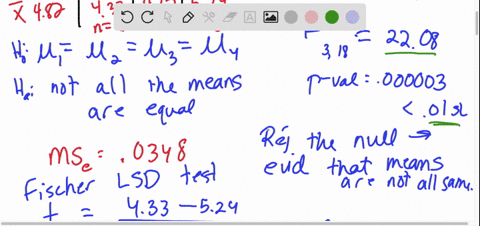 X̄ 4.82
n=
H₀: μ₁ = μ₂ = μ₃ = μ₄
Hₐ: not all the means
are equal
F 3, 18 = 22.08
p-val = .000003
< .01
Rej. the null →
evid that means
are not all same.
MSₑ = .0348
Fischer LSD test
t = 4.33 - 5.24